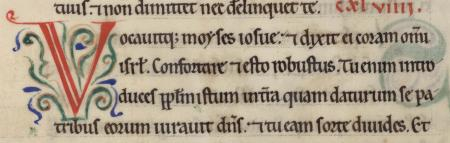 tuus· ⁊ non dimittet nec delinquet te. cxlviiii.
Vocauitq; moyses iosue· ⁊ dixit ei coram omī
isrl̄. Confortare ⁊ esto robustus. Tu enim intro
duces pplm̄ istum in t̄ra quam daturum se pa-
tribus eorum iurauit dn̄s. ⁊ tu eam sorte diuides. Et